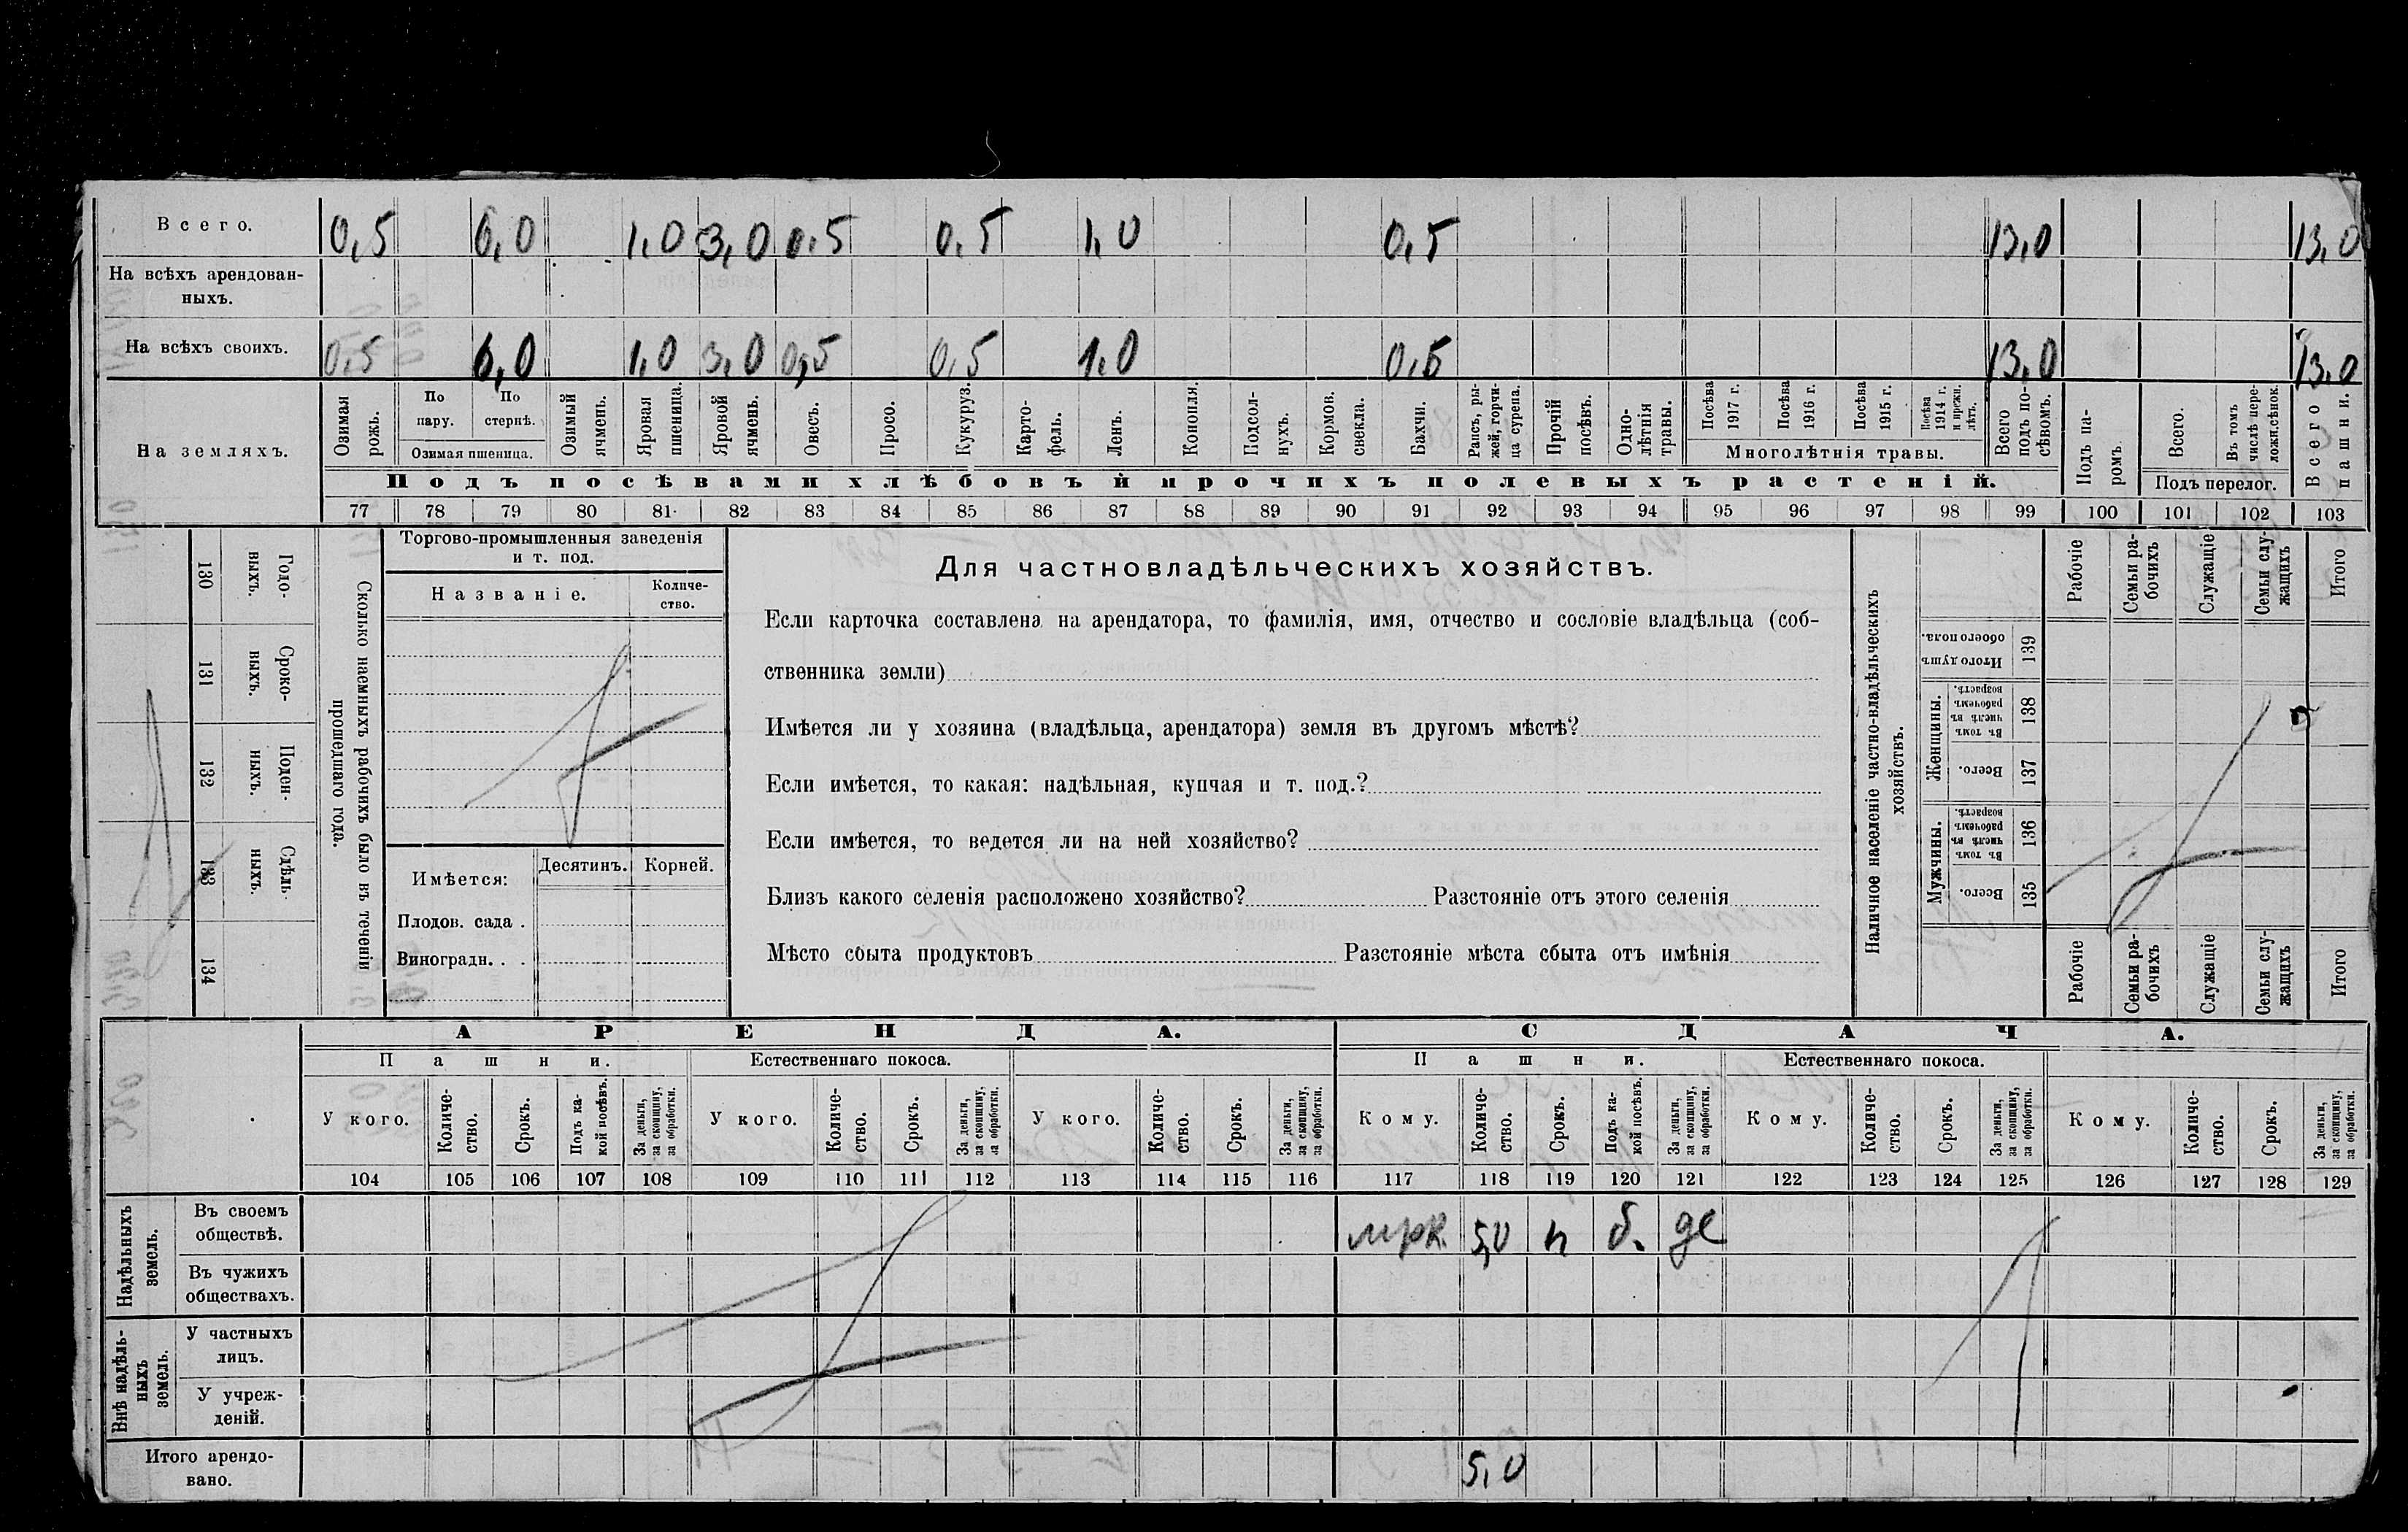 Всего. 0,5 6,0 1,0 3,0 0,5 0,5 1,0 0,5 13,0 13,0
На всѣхъ арендован-
ныхъ.
На всѣхъ своихъ. 0,5 6,0 1,0 3,0 0,5 0,5 1,0 0,5 13,0 13,0
На земляхъ.
Озимая рожь.
По пару.
По стернѣ.
Озимая пшеница.
Озимый ячмень.
Яровая пшеница.
Яровой ячмень.
Овесъ.
Просо.
Кукуруз.
Карто-
фель.
Ленъ.
Конопля.
Подсол-
нухъ.
Кормов. свекла.
Бахчи.
Рапсъ, ры-
жей, горчи-
ца сурепа.
Прочій посѣвъ.
Одно-
лѣтнія травы.
Посѣва 1917 г.
Посѣва 1916 г.
Посѣва 1915 г.
Посѣва 1914 г. и прежн. лѣтъ.
Многолѣтнія травы.
Всего подъ по-
сѣвомъ.
Подъ па-
ромъ.
Всего.
Въ томъ числѣ пере-
ложн.сѣнок.
Подъ перелог.
Всего пашни.
Подъ посѣвами хлѣбовъ и прочихъ полевыхъ растеній.
77 78 79 80 81 82 83 84 85 86 87 88 89 90 91 92 93 94 95 96 97 98 99 100 101 102 103
130 Годо-
выхъ.
131 Сроко-
выхъ.
132 Поден-
ныхъ.
133 Сдѣль-
ныхъ.
134
Сколько наемныхъ рабочихъ было въ теченіи
прошедшаго года.
Торгово-промышленныя заведенія
и т. под.
Названіе.
Количе-
ство.
Имѣется: Десятинъ. Корней.
Плодов. сада .
Виноградн. . .
Для частновладѣльческихъ хозяйствъ.
Если карточка составлена на арендатора, то фамилія, имя, отчество и сословіе владѣльца (соб-
ственника земли)
Имѣется ли у хозяина (владѣльца, арендатора) земля въ другомъ мѣстѣ?
Если имѣется, то какая: надѣльная, купчая и т. под.?
Если имѣется, то ведется ли на ней хозяйство?
Близъ какого селенія расположено хозяйство? Разстояніе отъ этого селенія
Мѣсто сбыта продуктовъ Разстояніе мѣста сбыта отъ имѣнія
Наличное населеніе частно-владѣльческихъ
хозяйствъ.
Рабочіе
Семьи ра-
бочихъ
Служащіе
Семьи слу-
жащихъ
Итого
Итого душъ обоего пола. 139
Женщины.
Въ томъ числѣ въ рабочемъ возрастѣ. 138
Всего. 137
Мужчины.
Въ томъ числѣ въ рабочемъ возрастѣ. 136
Всего. 135
Рабочіе
Семьи ра-
бочихъ
Служащіе
Семьи слу-
жащихъ
Итого
АРЕНДА. СДАЧА.
Пашни. Естественнаго покоса. Пашни. Естественнаго покоса.
У кого.
Количе-
ство.
Срокъ.
Подъ ка-
кой посѣвъ.
За деньги,
за скопщину,
за обработки.
У кого.
Количе-
ство.
Срокъ.
За деньги,
за скопщину,
за обработки.
У кого.
Количе-
ство.
Срокъ.
За деньги,
за скопщину,
за обработки.
Кому.
Количе-
ство.
Срокъ.
Подъ ка-
кой посѣвъ.
За деньги,
за скопщину,
за обработки.
Кому.
Количе-
ство.
Срокъ.
За деньги,
за скопщину,
за обработки.
Кому.
Количе-
ство.
Срокъ.
За деньги,
за скопщину,
за обработки.
104 105 106 107 108 109 110 111 112 113 114 115 116 117 118 119 120 121 122 123 124 125 126 127 128 129
Надѣльныхъ
земель.
Въ своемъ
обществѣ. 5,0 п б. де
Въ чужихъ
обществахъ.
Внѣ надѣль-
ныхъ
земель.
У частныхъ
лицъ.
У учреж-
деній.
Итого арендо-
вано. 5,0